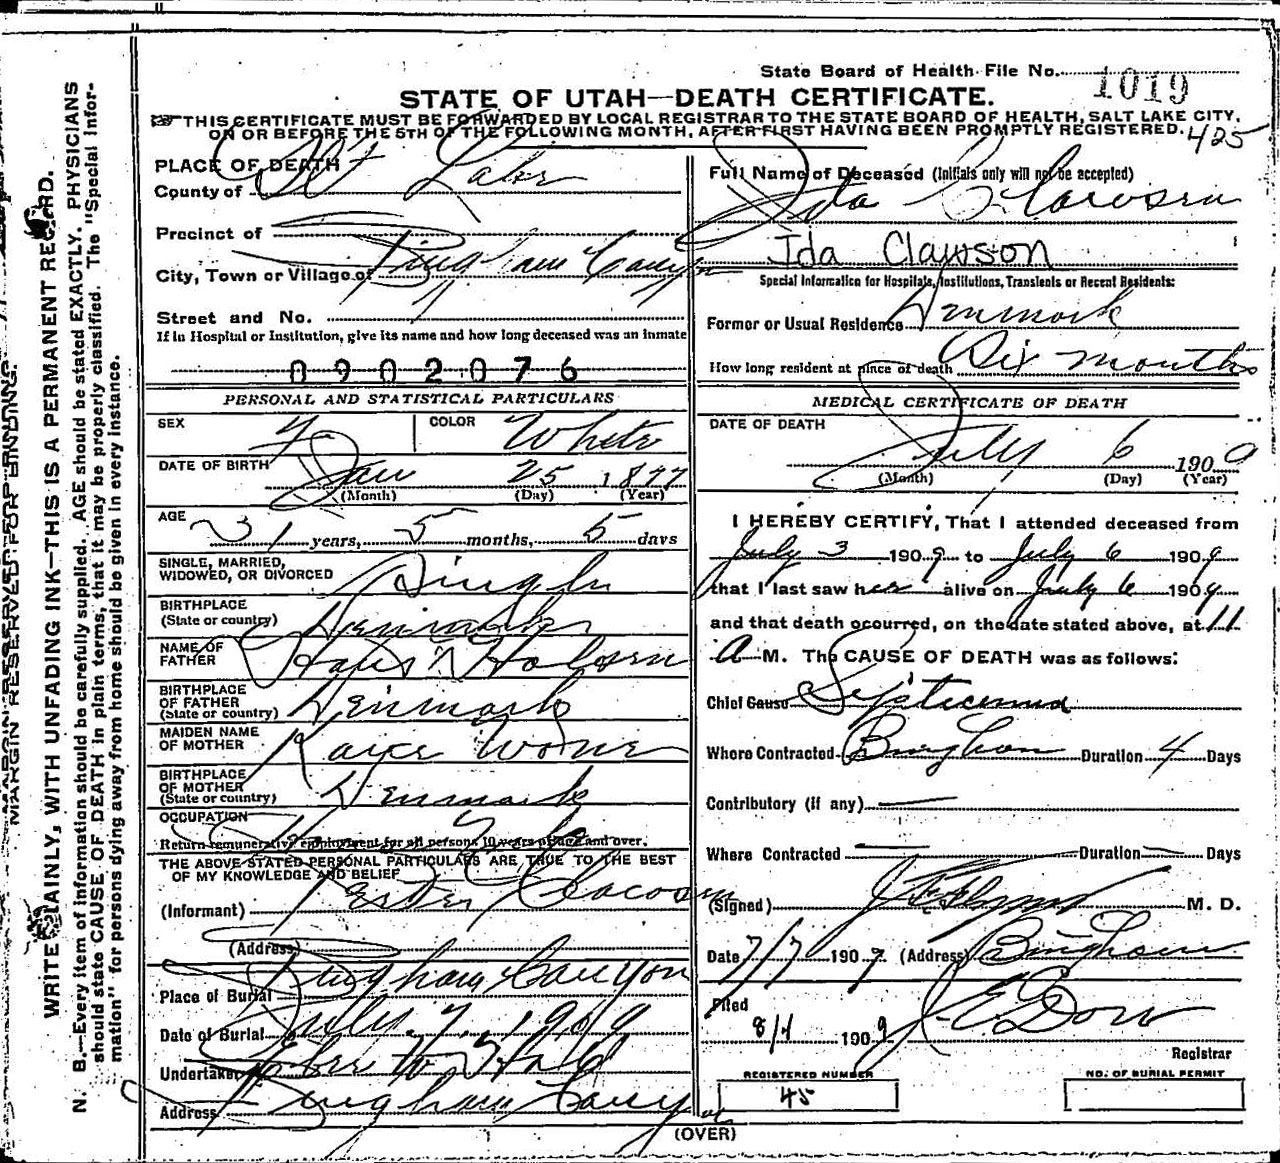 State Board of Health File No. 1019
STATE OF UTAH—DEATH CERTIFICATE.
THIS CERTIFICATE MUST BE FORWARDED BY LOCAL REGISTRAR TO THE STATE BOARD OF HEALTH, SALT LAKE CITY,
ON OR BEFORE THE 5TH OF THE FOLLOWING MONTH, AFTER FIRST HAVING BEEN PROMPTLY REGISTERED. 425
PLACE OF DEATH
County of Salt Lake
Precinct of
City, Town or Village of Bingham Canyon
Street and No.
If in Hospital or Institution, give its name and how long deceased was an inmate
0902076
PERSONAL AND STATISTICAL PARTICULARS
SEX F COLOR White
DATE OF BIRTH Jan 25 1877
(Month) (Day) (Year)
AGE
31 years, 5 months, 5 days
SINGLE, MARRIED,
WIDOWED, OR DIVORCED Single
BIRTHPLACE
(State or country) Denmark
NAME OF
FATHER Hans
BIRTHPLACE
OF FATHER
(State or country) Denmark
MAIDEN NAME
OF MOTHER
BIRTHPLACE
OF MOTHER
(State or country) Denmark
OCCUPATION
Return remunerative employment for all persons 10 years of age and over.
THE ABOVE STATED PERSONAL PARTICULARS ARE TRUE TO THE BEST
OF MY KNOWLEDGE AND BELIEF
(Informant)
(Address)
Place of Burial Bingham Canyon
Date of Burial July 7, 1909
Undertaker
Address Bingham Canyon
Full Name of Deceased (Initials only will not be accepted)
Ida C. Clawson
Ida Clawson
Special Information for Hospitals, Institutions, Transients or Recent Residents:
Former or Usual Residence Denmark
How long resident at place of death Six months
MEDICAL CERTIFICATE OF DEATH
DATE OF DEATH
July 6 1909
(Month) (Day) (Year)
I HEREBY CERTIFY, That I attended deceased from
July 3 1909 to July 6 1909
that I last saw her alive on July 6 1909
and that death occurred, on the date stated above, at 11
A M. The CAUSE OF DEATH was as follows:
Chief Cause Septicemia
Where Contracted Bingham Duration 4 Days
Contributory (if any)
Where Contracted Duration Days
(Signed) M. D.
Date 7/7 1909 (Address) Bingham
Filed
8/1 1909 J. E. Dow
Registrar
REGISTERED NUMBER
45
NO. OF BURIAL PERMIT
(OVER)
MARGIN RESERVED FOR BINDING.
WRITE PLAINLY, WITH UNFADING INK—THIS IS A PERMANENT RECORD.
N. B.—Every item of information should be carefully supplied. AGE should be stated EXACTLY. PHYSICIANS
should state CAUSE OF DEATH in plain terms, that it may be properly classified. The "Special Infor-
mation" for persons dying away from home should be given in every instance.